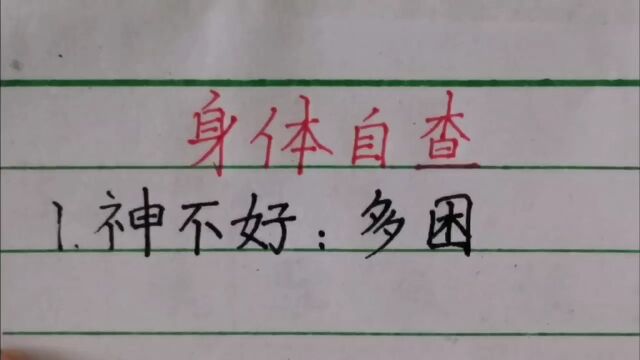 身体自查
1.神不好：多困